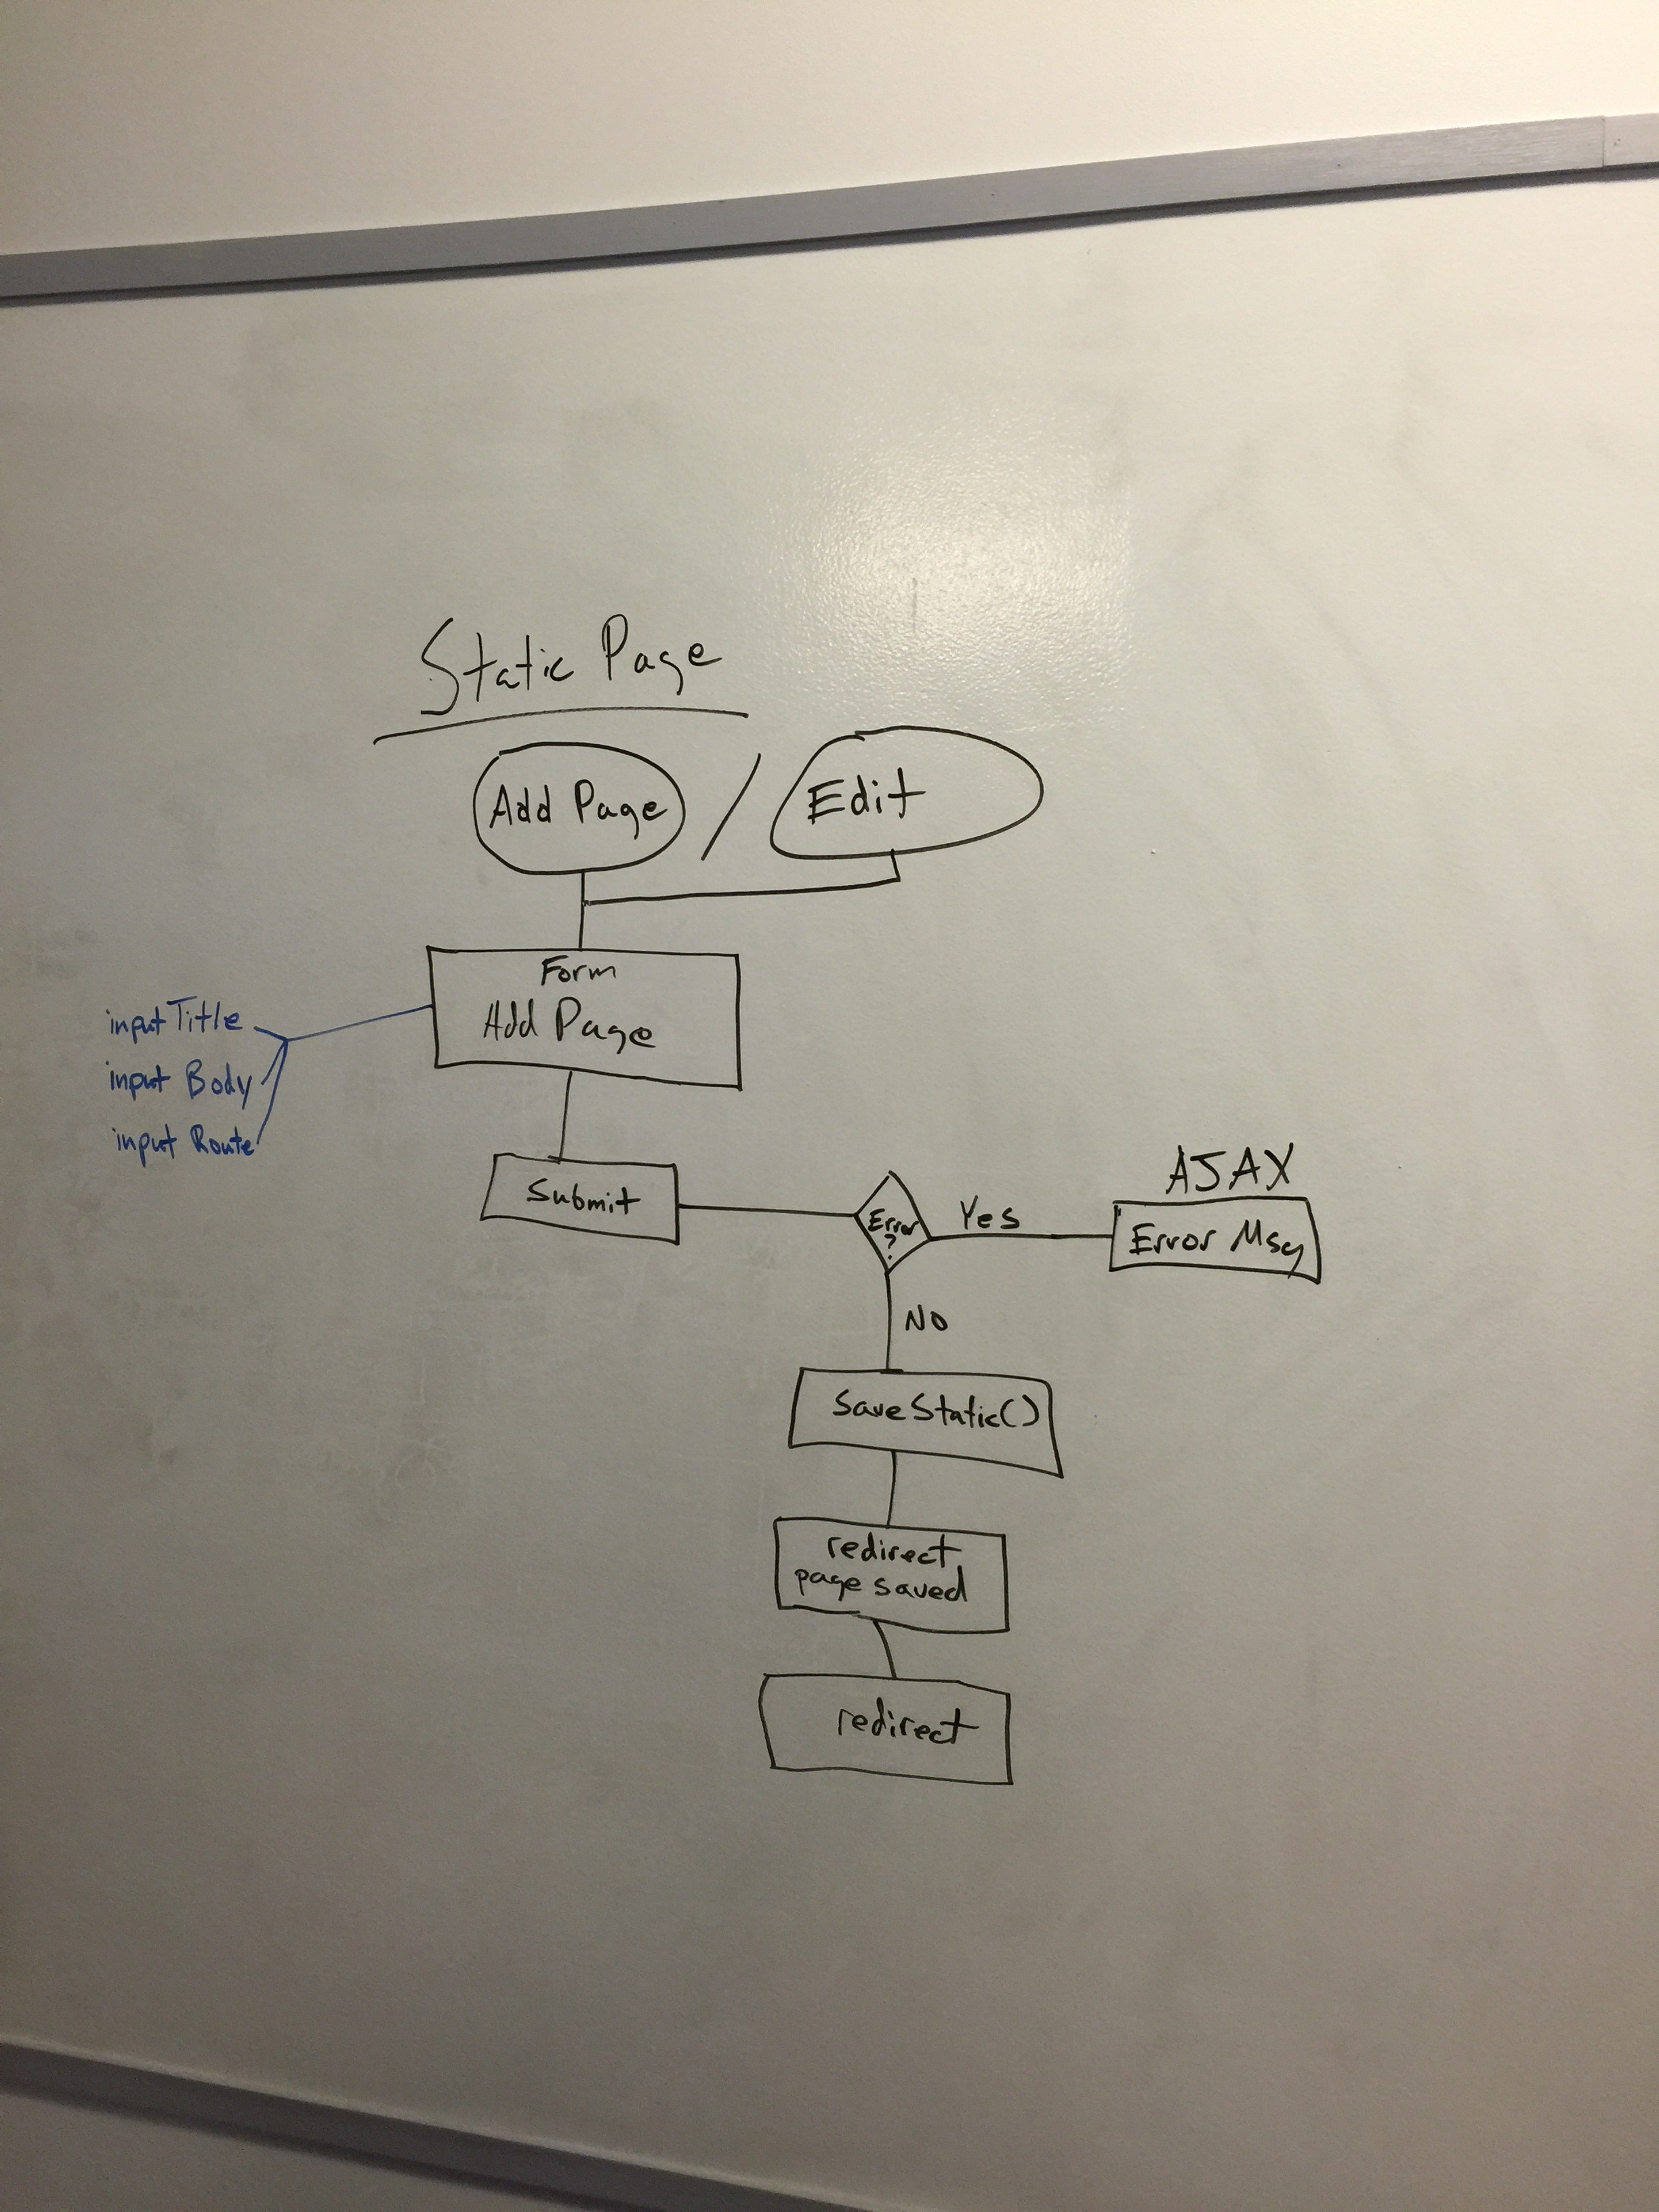 Static Page
Add Page / Edit
Form
Add Page
inputTitle
input Body
input Route
Submit
Error
?
Yes
AJAX
Error Msg
NO
SaveStatic()
redirect
page saved
redirect